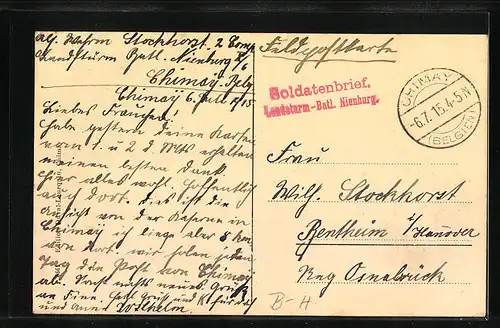 Abs. Wehrm Stockhorst. 2 Comp
Landsturm Batl. Nienburg X/6
Chimay. Belg
Chimay 6. Juli 15
Liebes Frauchen!
Habe gestern deine Karten
vom 1 u 2 d Mts erhalten
meinen besten Dank
hier alles wohl. hoffentlich
auch dort. dies ist die
Ansicht von der Kaserne in
Chimay ich liege aber 8 km
von dort, wir holen jeden
Tag die Post von Chimay
ab. Sonst nichts neues. Gruß
an Fine. Gruß und K für dich
und Anna Wilhelm
Feldpostkarte
Soldatenbrief.
Landsturm-Batl. Nienburg.
CHIMAY
-6.7.15.4-5N
(BELGIEN)
Frau
Wilh. Stockhorst
Bentheim i/Hannover
Reg Osnabrück
B-H